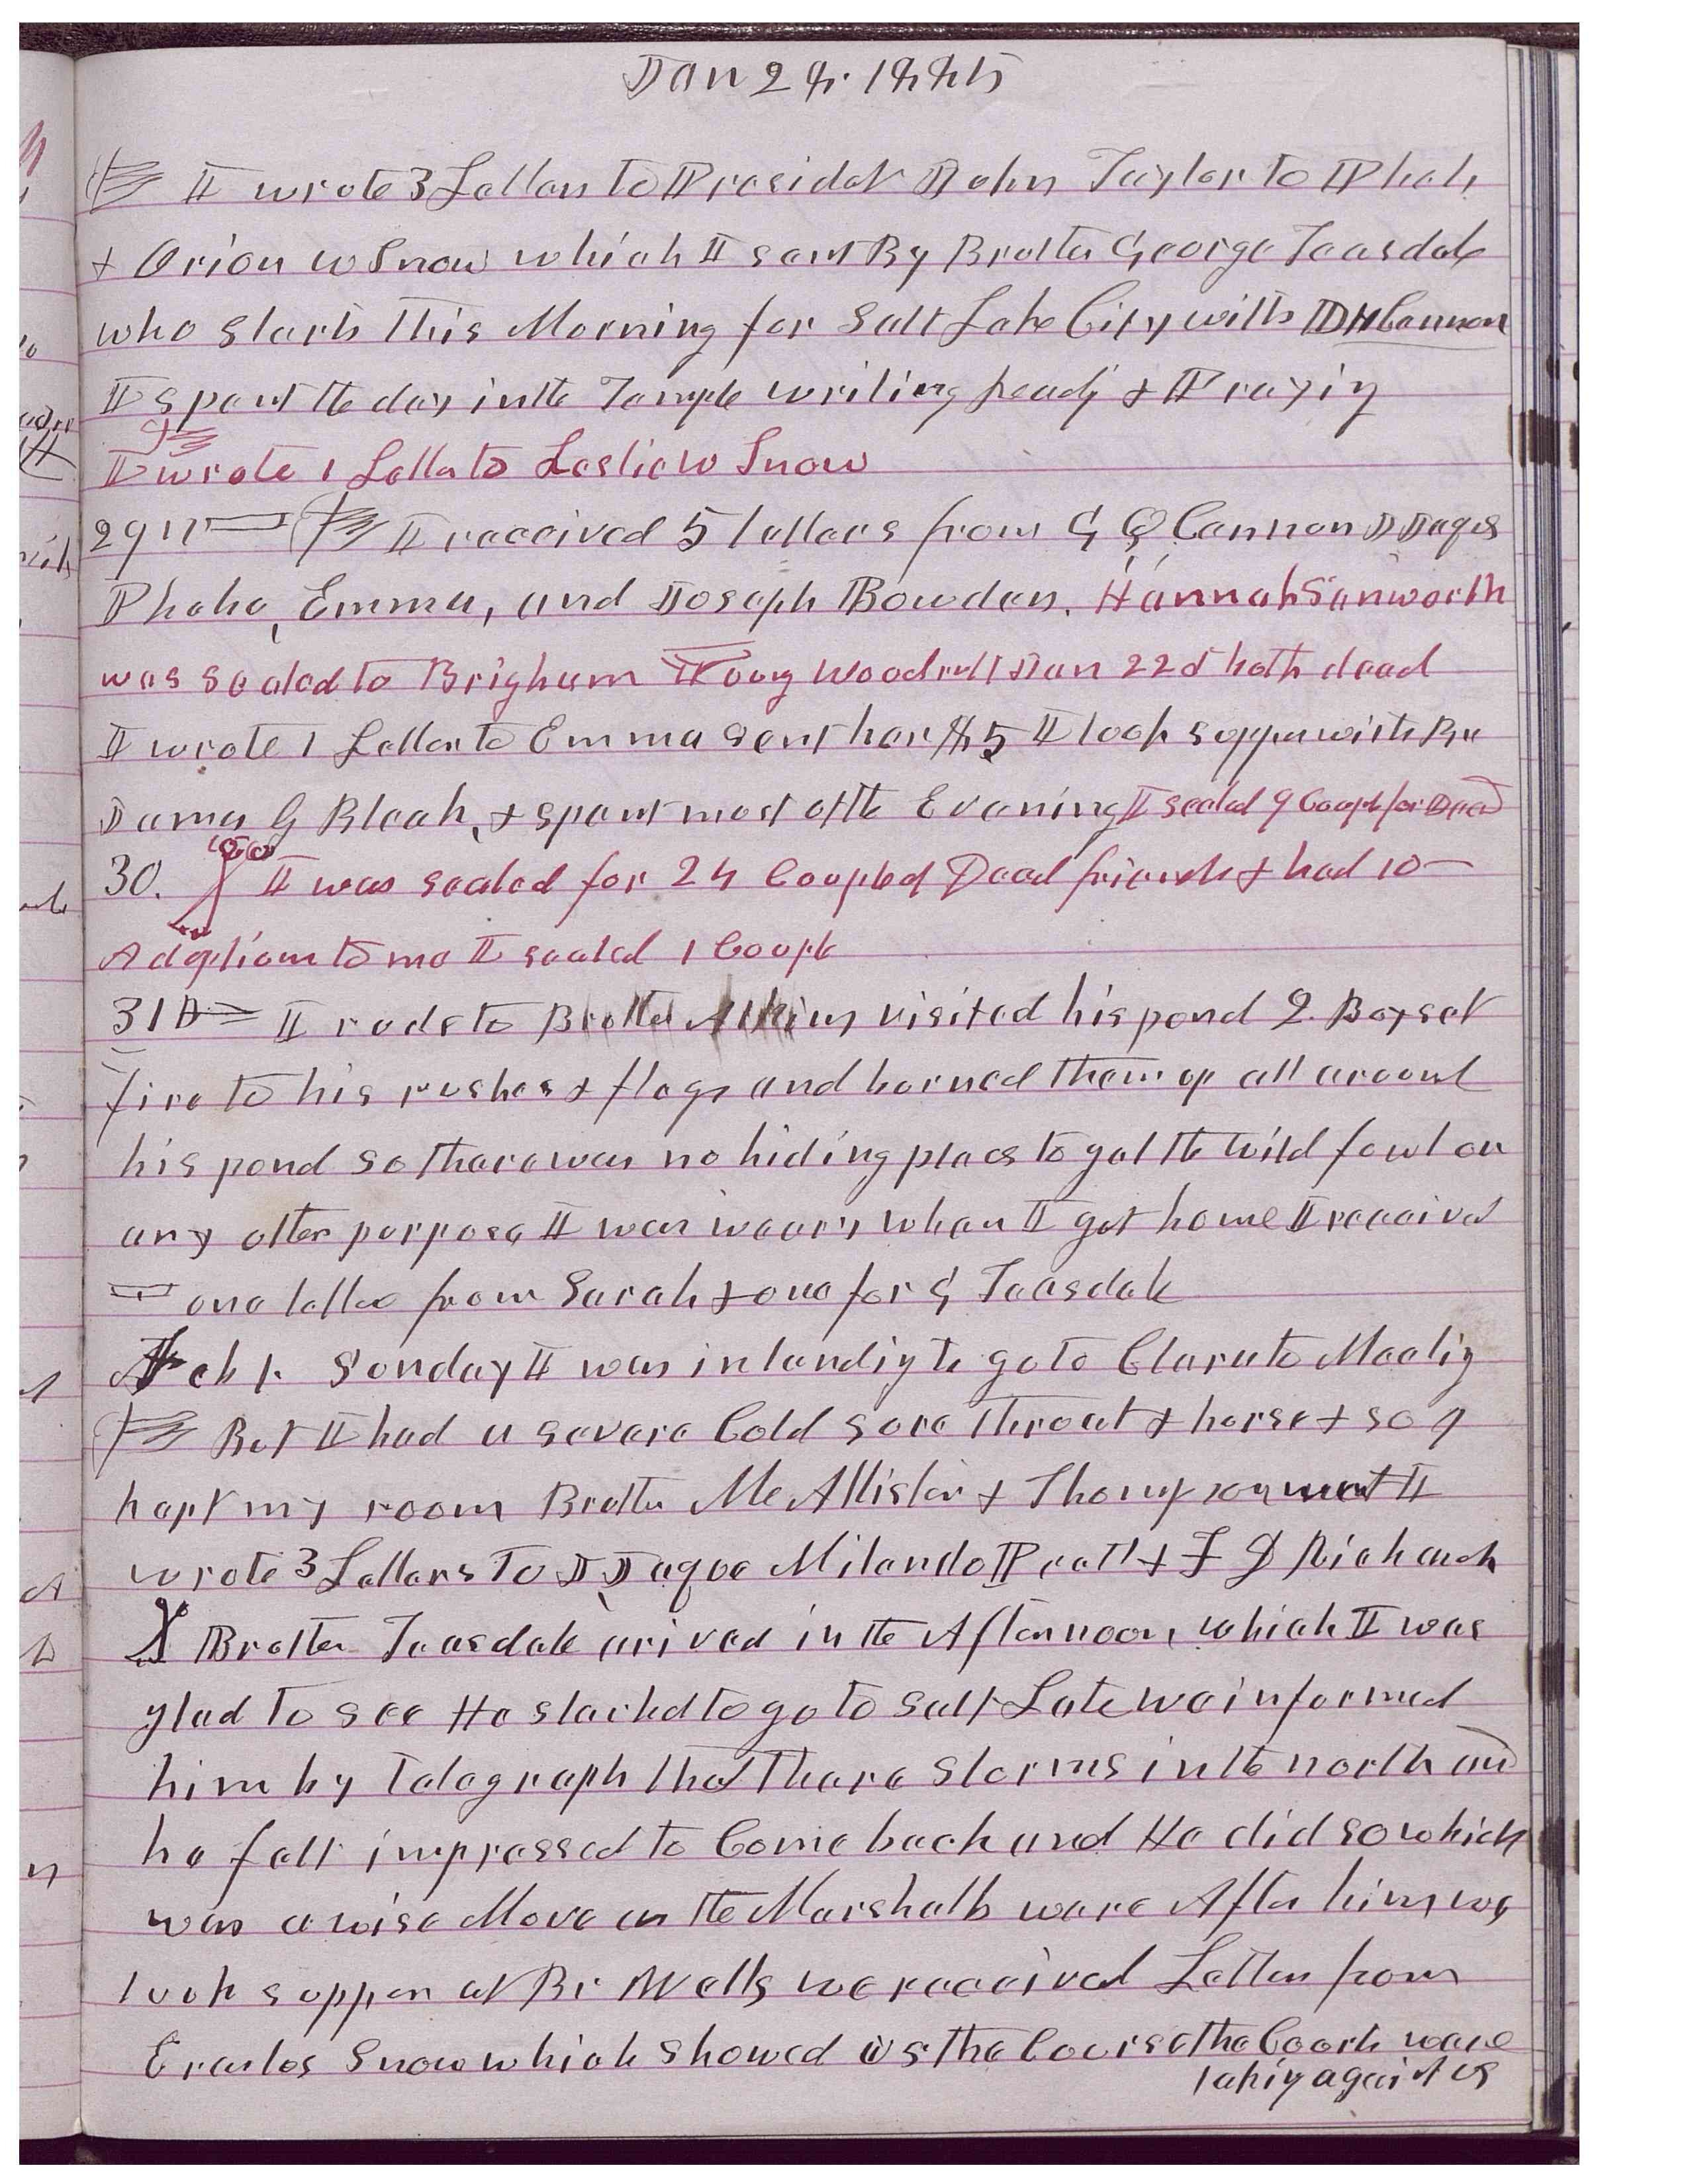 Jan 28. 1885
I wrote 3 Letters to President John Taylor to Phebe
& Orion W Snow which I sent By Brother George Teasdale
who starts this Morning for Salt Lake City with D H Cannon
I spent the day in the Temple writing Readig & Prayig
I wrote 1 Letter to Leslie W Snow
29th I received 5 letters from G Q Cannon J Jaques
Phebe, Emma, and Joseph Bowden. Hannah
was sealed to Brigham Young Woodruff Jan 22d both dead
I wrote 1 Letter to Emma sent her $5 I took supper with Br
James G Bleak, & spent most of the Evening I sealed 9 Couple for Dead
30. I was sealed for 24 Coupled Dead friends & had 10
Adoptions to me I sealed 1 Couple
31 I rode to Brother Atkins visited his pond 2. Boys set
fire to his rushes & flags and burned them up all around
his pond so there was no hiding place to get the wild fowl or
any other purpose I was weary when I got home I received
one letter from Sarah & one for G Teasdale
Feb 1. Sunday I was intendig to go to Clara to Meetig
But I had a severe Cold sore throat & horse & so I
kept my room Brother McAllister & Thompson went I
wrote 3 Letters to J Jaques Milando Pratt & F D Richards
Brother Teasdale arived in the Afternoon which I was
glad to see He started to go to Salt Lake we informed
him by telegraph that there storms in the north and
he felt impressed to Come back and He did so which
was a wise Move as the Marshalls were After him we
took supper at Br Wells we received Letter from
Erastus Snow which showed us the Course the Courts were
takig against us